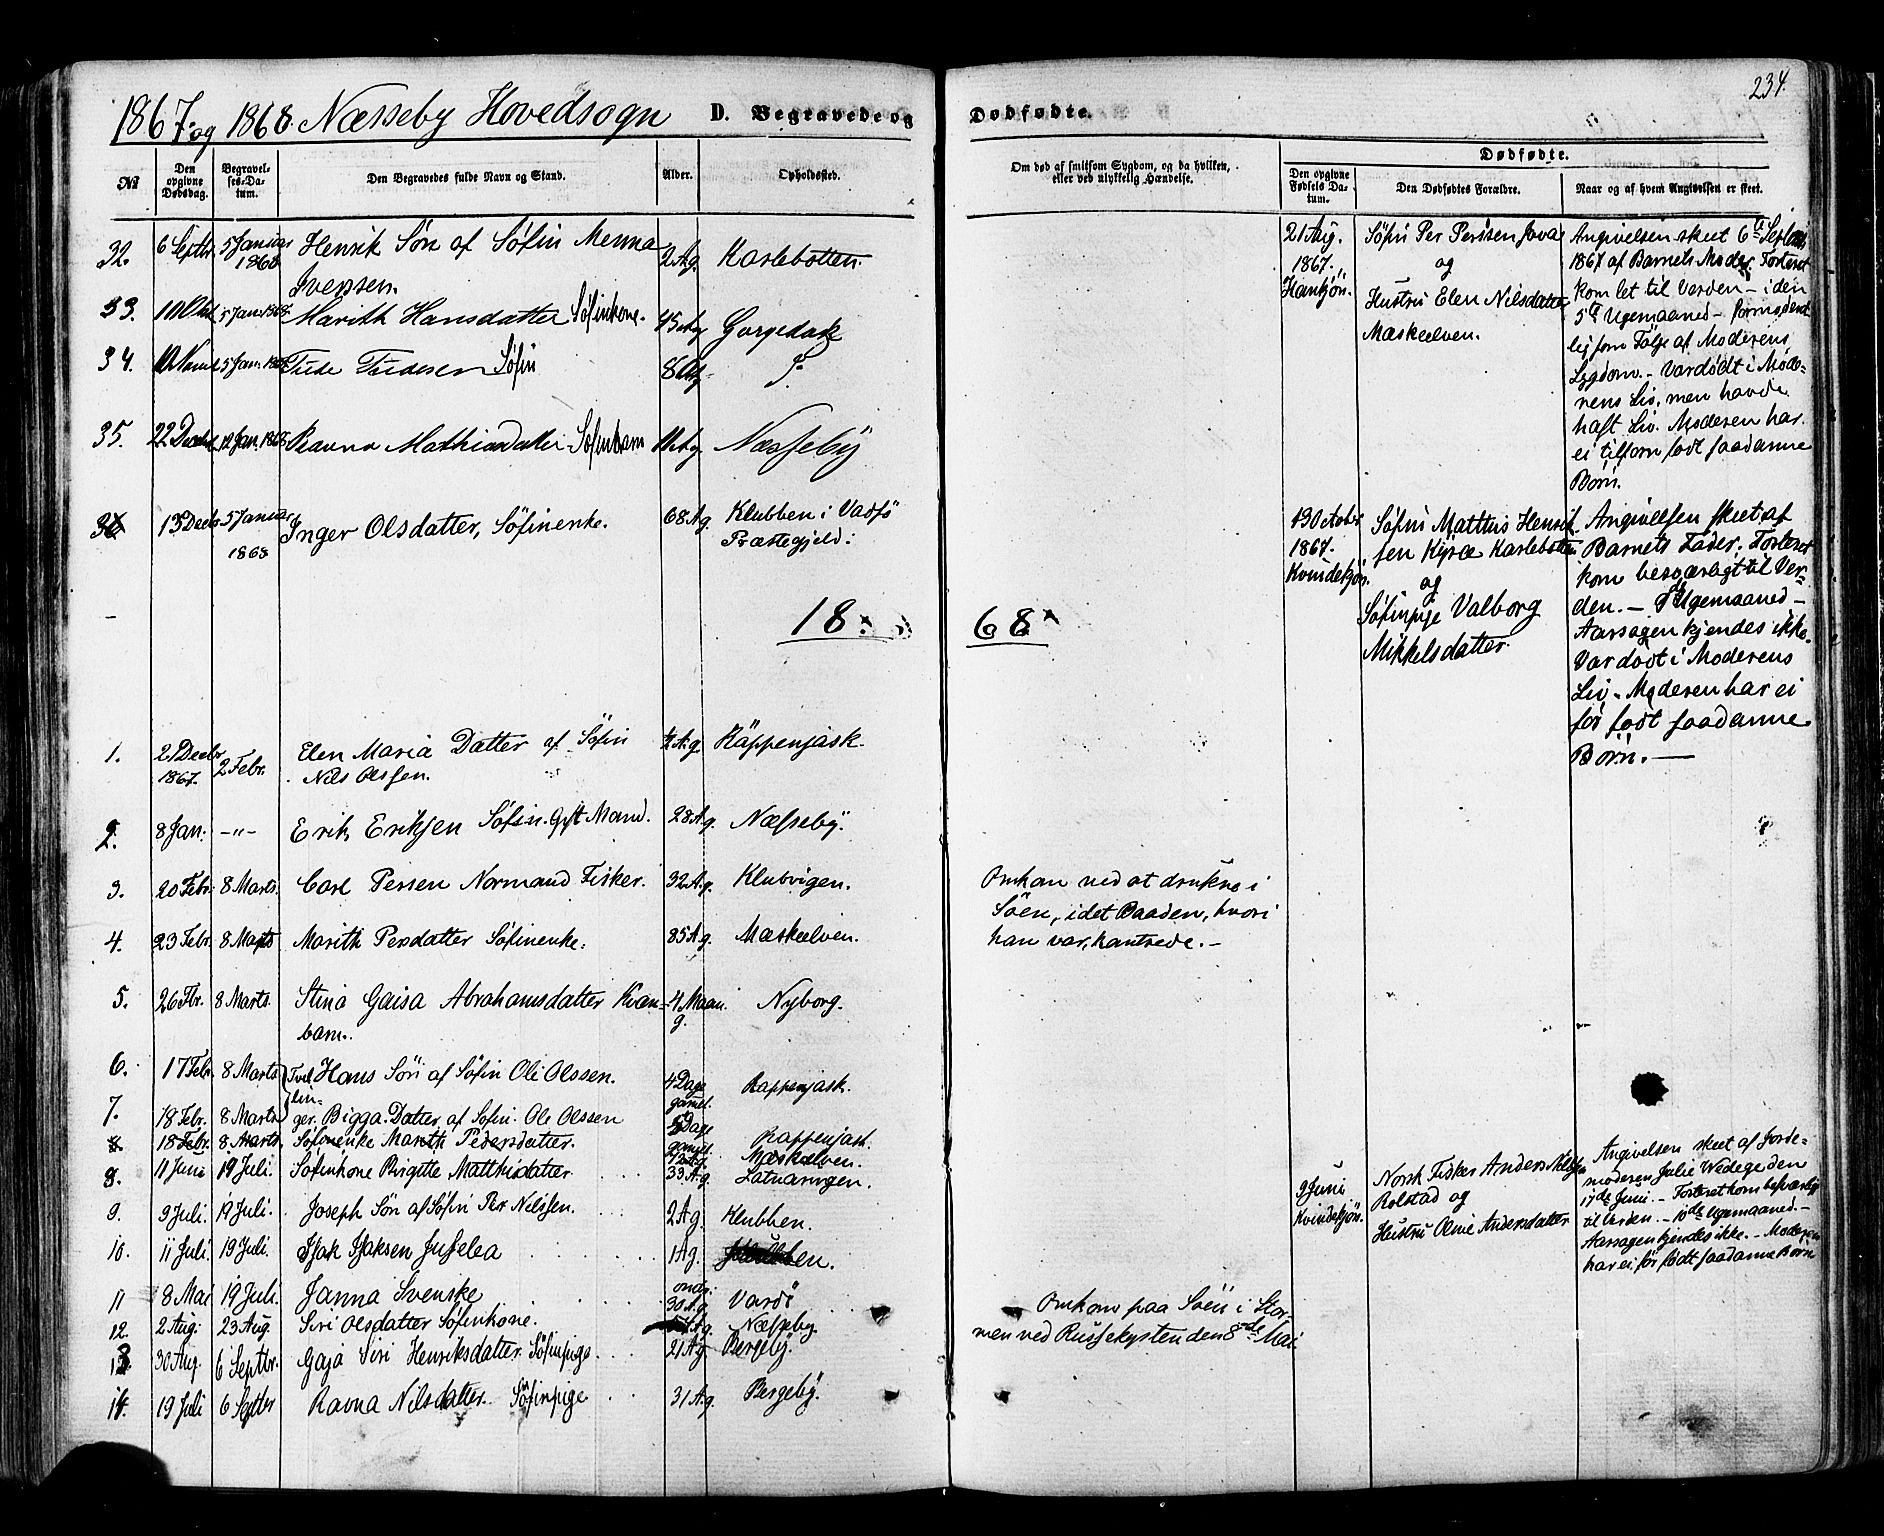 234.
1867 og 1868. Næsseby Hovedsogn D. Begravede og Dødfødte.
No Den opgivne Dødsdag. Begravelses-Datum. Den Begravedes fulde Navn og Stand. Alder. Opholdssted. Om død af smitsom Sygdom, og da hvilken, eller ved ulykkelig Hændelse.
Dødfødte.
Den opgivne Fødsels Datum. Den Dødfødtes Forældre. Naar og af hvem Angivelsen er skeet.
32. 6 Septbr. 5 Januar 1868 Henrik Søn af Søfin Menna Iversen. 2 Ag. Karlebotten
33. 5 Jan. 1868 Marith Hansdatter Søfinkone. 45 Ag
34. 5 Jan. 1868 Tude Tudesen Søfin 8 Ag.
35. 22 Decbr 12 Jan. 1868 Ravna Mathisdatter Søfinbarn Næsseby
36 13 Decbr 5 Januar 1868 Inger Olsdatter, Søfinenke. 68 Ag. Klubben i Vadsø
Præstegjeld.
21 Aug.
1867.
Hankjøn.
Søfin Per Persen Java
og
Hustru Elen Nilsdatter
Mæskeelven.
Angivelsen skeet 6te Septemb
1867 af Barnets Moder. Fosteret
kom let til Verden – i den
5te Ugemaaned –
Følge af Moderens
Sygdom. – Var dødt i Mode-
rens Liv, men havde
haft Liv. Moderen har
ei tilforn født saadanne
Børn.
13 October
1867.
Kvindekjøn.
Søfin Matthis Henrik-
sen Kjræ Karlebotten
og
Søfinpige Valborg
Mikkelsdatter.
Angivelsen skeet af
Barnets Fader. Fosteret
kom besværligt til Ver-
den. – Ugemaaned –
Aarsagen kjendes ikke.
Var dødt i Moderens
Liv – Moderen har ei
før født saadanne
Børn. –
18 68
1. 21 Decbr 1867. 2 Febr. Elen Maria Datter af Søfin
Nils Olssen. Ag. Käppenjask.
2. 8 Jan. –"– Erik Eriksen Søfin. Gift Mand. 28 Ag. Næsseby.
3. 20 Febr. 8 Marts. Carl Persen Normand Fisker. 32 Ag. Klubvigen. Omkom ved at drukne i
Søen, idet Baaden, hvori
han var, kantrede. –
4. 23 Febr. 8 Marts Marith Persdatter Søfinenke. 85 Ag. Mæskeelven.
5. 26 Fbr. 8 Marts. Stina Gaisa Abrahamsdatter Kvæn-
barn. 4 Maan. g. Nyborg.
6. 17 Febr. 8 Marts Tvil Hans Søn af Søfin Ole Olssen. 4 Dage gamel. Kappenjask.
7. 18 Febr. 8 Marts lin-
ger. Bigga Datter af Søfin Ole Olssen 5 Dage gamel.
8. 18 Febr. 8 Marts Søfinenke Marith Pedersdatter. Kappenjask. Mæskelven.
8. 11 Juni 19 Juli. Søfinkone Birgitte Matthisdatter 33 Ag. Latnaringen.
9. 9 Juli. 19 Juli. Joseph Søn af Søfin Per Nilssen. 2 Ag. Klubben.
10. 11 Juli 19 Juli. Isak Isaksen Jusselea 1 Ag.
11 8 Mai 19 Juli. Janna Svenske omtr. 30 Ag. Vardö Omkom paa Søen i Stor-
men ved Russekysten den 8de Mai.
12. 2 Aug. 23 Aug. Siri Olsdatter Søfinkone. Ag. Næsseby.
13 30 Aug. 6 Septbr. Gaja Siri Henriksdatter Søfinpige 21 Ag. Bergeby.
14. 19 Juli 6 Septbr Ravna Nilsdatter. Søfinpige 31 Ag. Bergeby.
9 Juni
Kvindekjøn.
Norsk Fisker Anders Nilssen
Rolstad og
Hustru Oline Andersdatter
Angivelsen skeet af Jorde-
moderen Julie Wedege den
17de Juni. – Fosteret kom besværlig
til Verden. – 10de Ugemaaned. –
Aarsagen kjendes ikke. – Moderen
har ei før født saadanne Børn